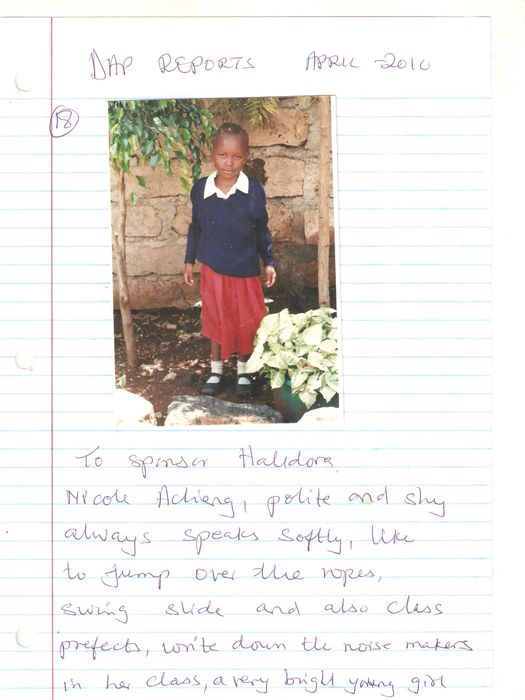 DAP REPORTS APRIL -2010
18
To sponsor Halldora.
Nicole Achieng, polite and shy
always speaks softly, like
to jump over the ropes,
swing slide and also class
prefects, write down the noise makers
in her class, a very bright young girl